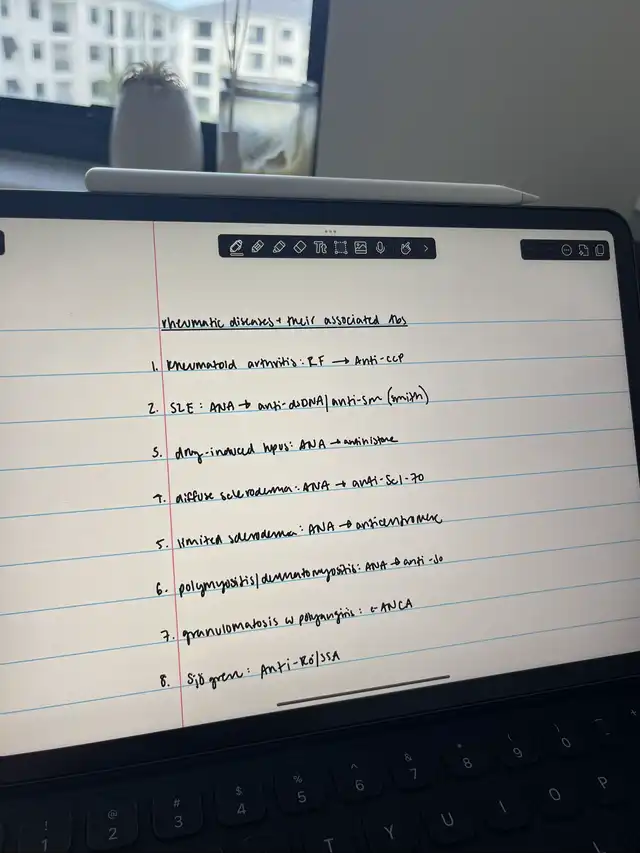 Tt
rheumatic diseases + their associated Abs
1. Rheumatoid arthritis: RF → Anti-CCP
2. SLE: ANA → anti-dsDNA/anti-sm (smith)
3. drug-induced lupus: ANA → antihistone
4. diffuse scleroderma: ANA → anti-Scl-70
5. limited scleroderma: ANA → anticentromere
6. polymyositis/dermatomyositis: ANA → anti-Jo
7. granulomatosis w polyangiitis: c-ANCA
8. Sjögren: Anti-Ro/SSA
! @ # $ % ^ & * ( )
1 2 3 4 5 6 7 8 9 0
T Y U I O P
L